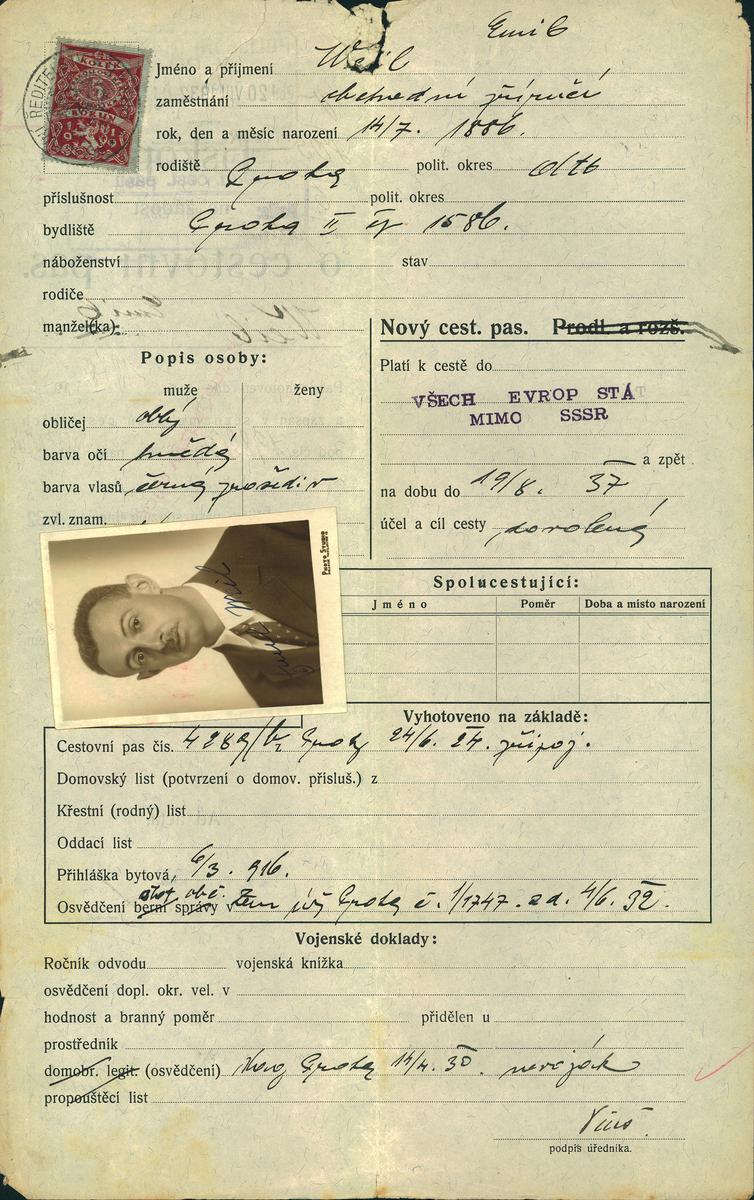 Emil
Jméno a příjmení Weil
zaměstnání obchodní příručí
rok, den a měsíc narození 14/7. 1886.
rodiště Praha polit. okres dtto
příslušnost polit. okres
bydliště Praha II čp 1586.
náboženství stav
rodiče
manžel(ka):
Popis osoby:
muže ženy
obličej oblý
barva očí hnědá
barva vlasů černá prošediv
zvl. znam.
Nový cest. pas. Prodl. a rozš.
Platí k cestě do
VŠECH EVROP STÁT
MIMO SSSR
a zpět
na dobu do 19/8. 37
účel a cíl cesty dovolená
Spolucestující:
Jméno Poměr Doba a místo narození
Vyhotoveno na základě:
Cestovní pas čís. 4289/ Praha 24/6. 24. připoj.
Domovský list (potvrzení o domov. přísluš.) z
Křestní (rodný) list
Oddací list
Přihláška bytová, 6/3. 916.
stát. obč.
Osvědčení berní správy v Zem úř Praha č. 1/1747. z d. 4/6. 32.
Vojenské doklady:
Ročník odvodu vojenská knížka
osvědčení dopl. okr. vel. v
hodnost a branný poměr přidělen u
prostředník
domobr. legit. (osvědčení) Mag Praha 14/4. 30. nevoják
propouštěcí list
podpis úředníka.